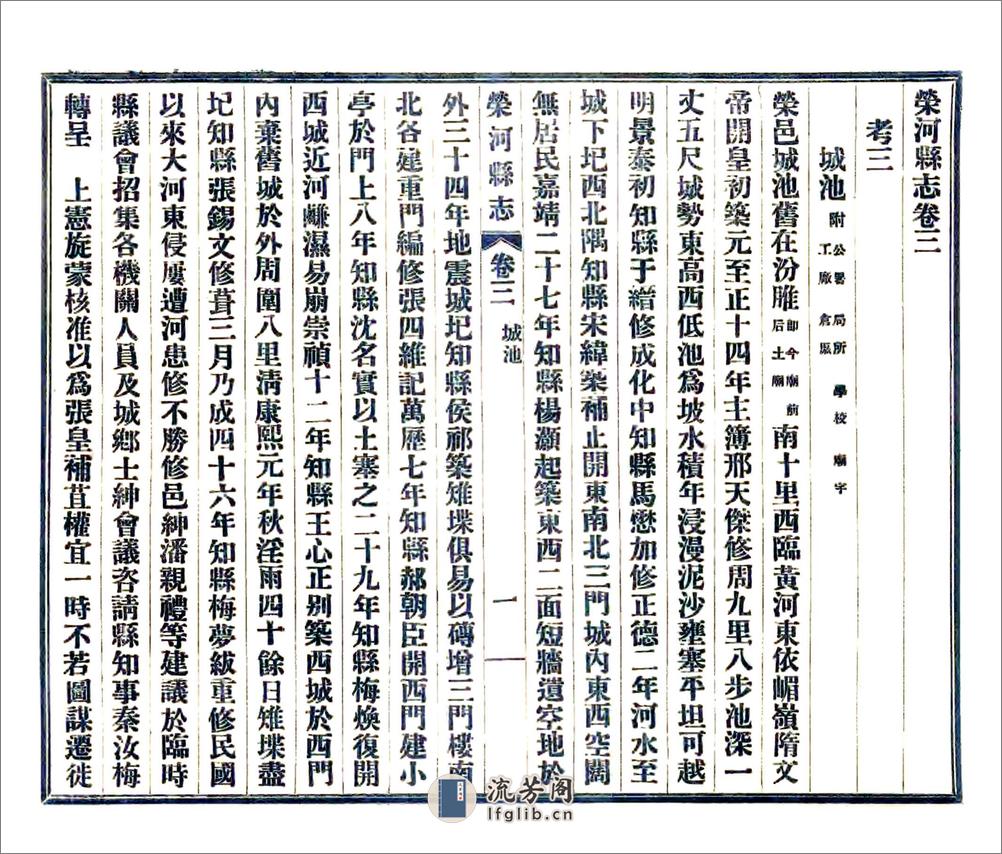 榮河縣志卷三
考三
城池 附公署 局所 學校 廟宇 工廠 倉廒
榮邑城池舊在汾脽 卽今廟前后土廟 南十里西臨黃河東依嵋嶺隋文
帝開皇初築元至正十四年主簿邢天傑修周九里八步池深一
丈五尺城勢東高西低池爲坡水積年浸漫泥沙壅塞平坦可越
明景泰初知縣于縉修成化中知縣馬懋加修正德二年河水至
城下圮西北隅知縣宋緯築補止開東南北三門城內東西空闊
無居民嘉靖二十七年知縣楊灝起築東西二面短牆遺空地於
榮河縣志 卷三 城池 一
外三十四年地震城圮知縣侯祁築雉堞俱易以磚增三門樓南
北各建重門編修張四維記萬歷七年知縣郝朝臣開西門建小
亭於門上八年知縣沈名實以土塞之二十九年知縣梅煥復開
西城近河鹻濕易崩崇禎十二年知縣王心正別築西城於西門
內棄舊城於外周圍八里淸康熙元年秋淫雨四十餘日雉堞盡
圮知縣張錫文修葺三月乃成四十六年知縣梅夢紱重修民國
以來大河東侵屢遭河患修不勝修邑紳潘親禮等建議於臨時
縣議會招集各機關人員及城鄉士紳會議咨請縣知事秦汝梅
轉呈 上憲旋蒙核准以爲張皇補苴權宜一時不若圖謀遷徙
流芳阁
lfglib.cn